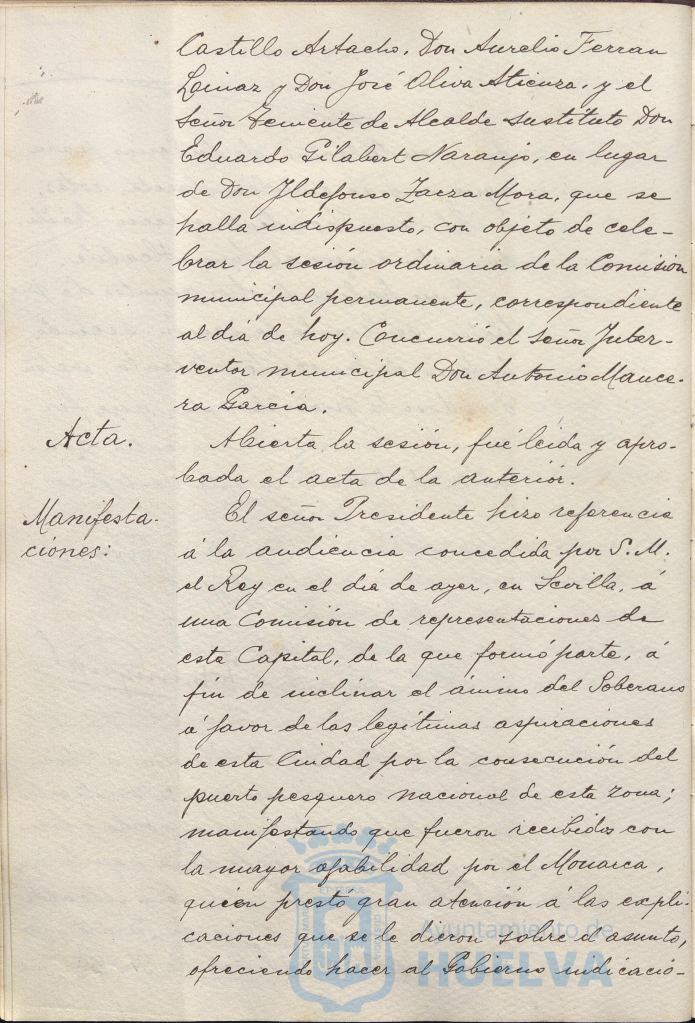 Castillo Artacho, Don Aurelio Ferran
Linaz y Don José Oliva Atienza, y el
Señor Teniente de Alcalde sustituto Don
Eduardo Gilabert Naranjo, en lugar
de Don Ildefonso Zarza Mora, que se
halla indispuesto, con objeto de cele-
brar la sesión ordinaria de la Comisión
municipal permanente, correspondiente
al dia de hoy. Concurrió el señor Inter-
ventor municipal Don Antonio Mance-
ra Garcia.
Acta.
Abierta la sesión, fué leida y apro-
bada el acta de la anterior.
Manifesta-
ciones:
El señor Presidente hizo referencia
á la audiencia concedida por S. M.
el Rey en el dia de ayer, en Sevilla, á
una Comisión de representaciones de
esta Capital, de la que formó parte, á
fin de inclinar el ánimo del Soberano
á favor de las legítimas aspiraciones
de esta Ciudad por la consecución del
puerto pesquero nacional de esta zona;
manifestando que fueron recibidos con
la mayor afabilidad por el Monarca,
quién prestó gran atención á las expli-
caciones que se le dieron sobre el asunto,
ofreciendo hacer al Gobierno indicacio-
Ayuntamiento de
HUELVA